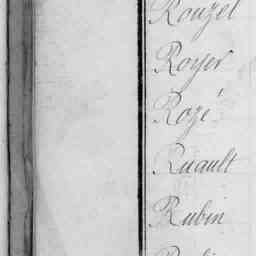 Rouzel
Royer
Rozé
Ruault
Rubin